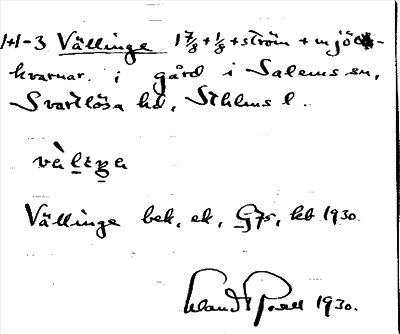 1+1-3 Vällinge 1 7/8 + 1/8 + ström + mjöl-
kvarnar. i gård i Salems sn,
Svartlösa hd, Sthlms l.
Vällinge bek, ek, Gjs, kb 1930.
1930.